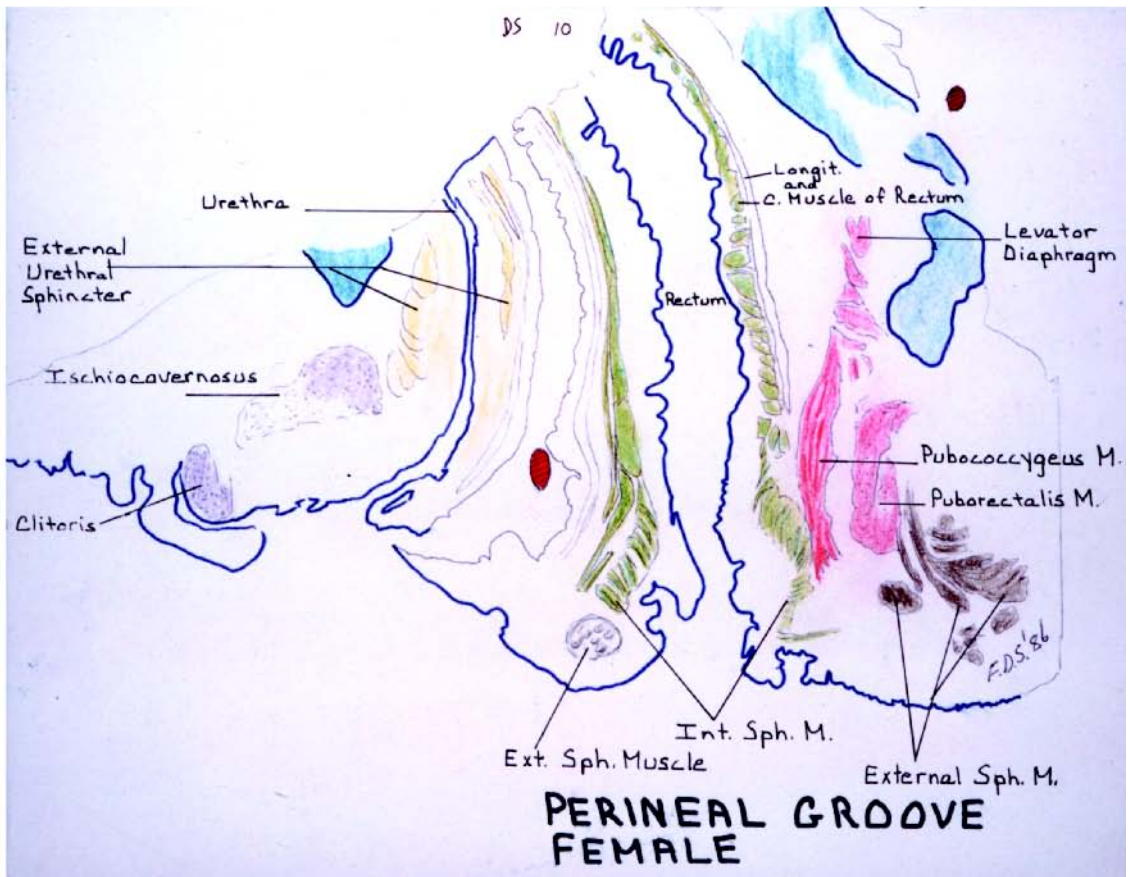 DS 10
Urethra
External
Urethral
Sphincter
Ischiocavernosus
Clitoris
Longit.
and
C. Muscle of Rectum
Levator
Diaphragm
Rectum
Pubococcygeus M.
Puborectalis M.
F.D.S.'86
Int. Sph. M.
Ext. Sph. Muscle
External Sph. M.
PERINEAL GROOVE
FEMALE